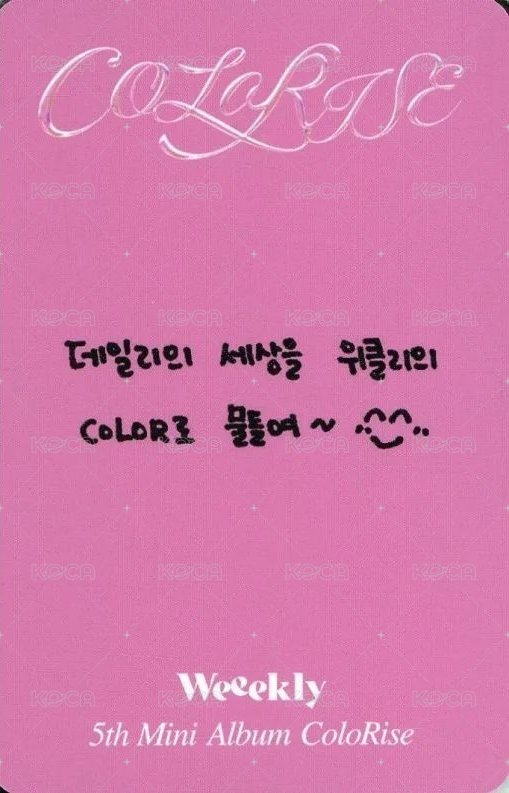 COLORISE
데일리의 세상을 위클리의
COLOR로 물들여~ ^^
Weeekly
5th Mini Album ColoRise
KOCA